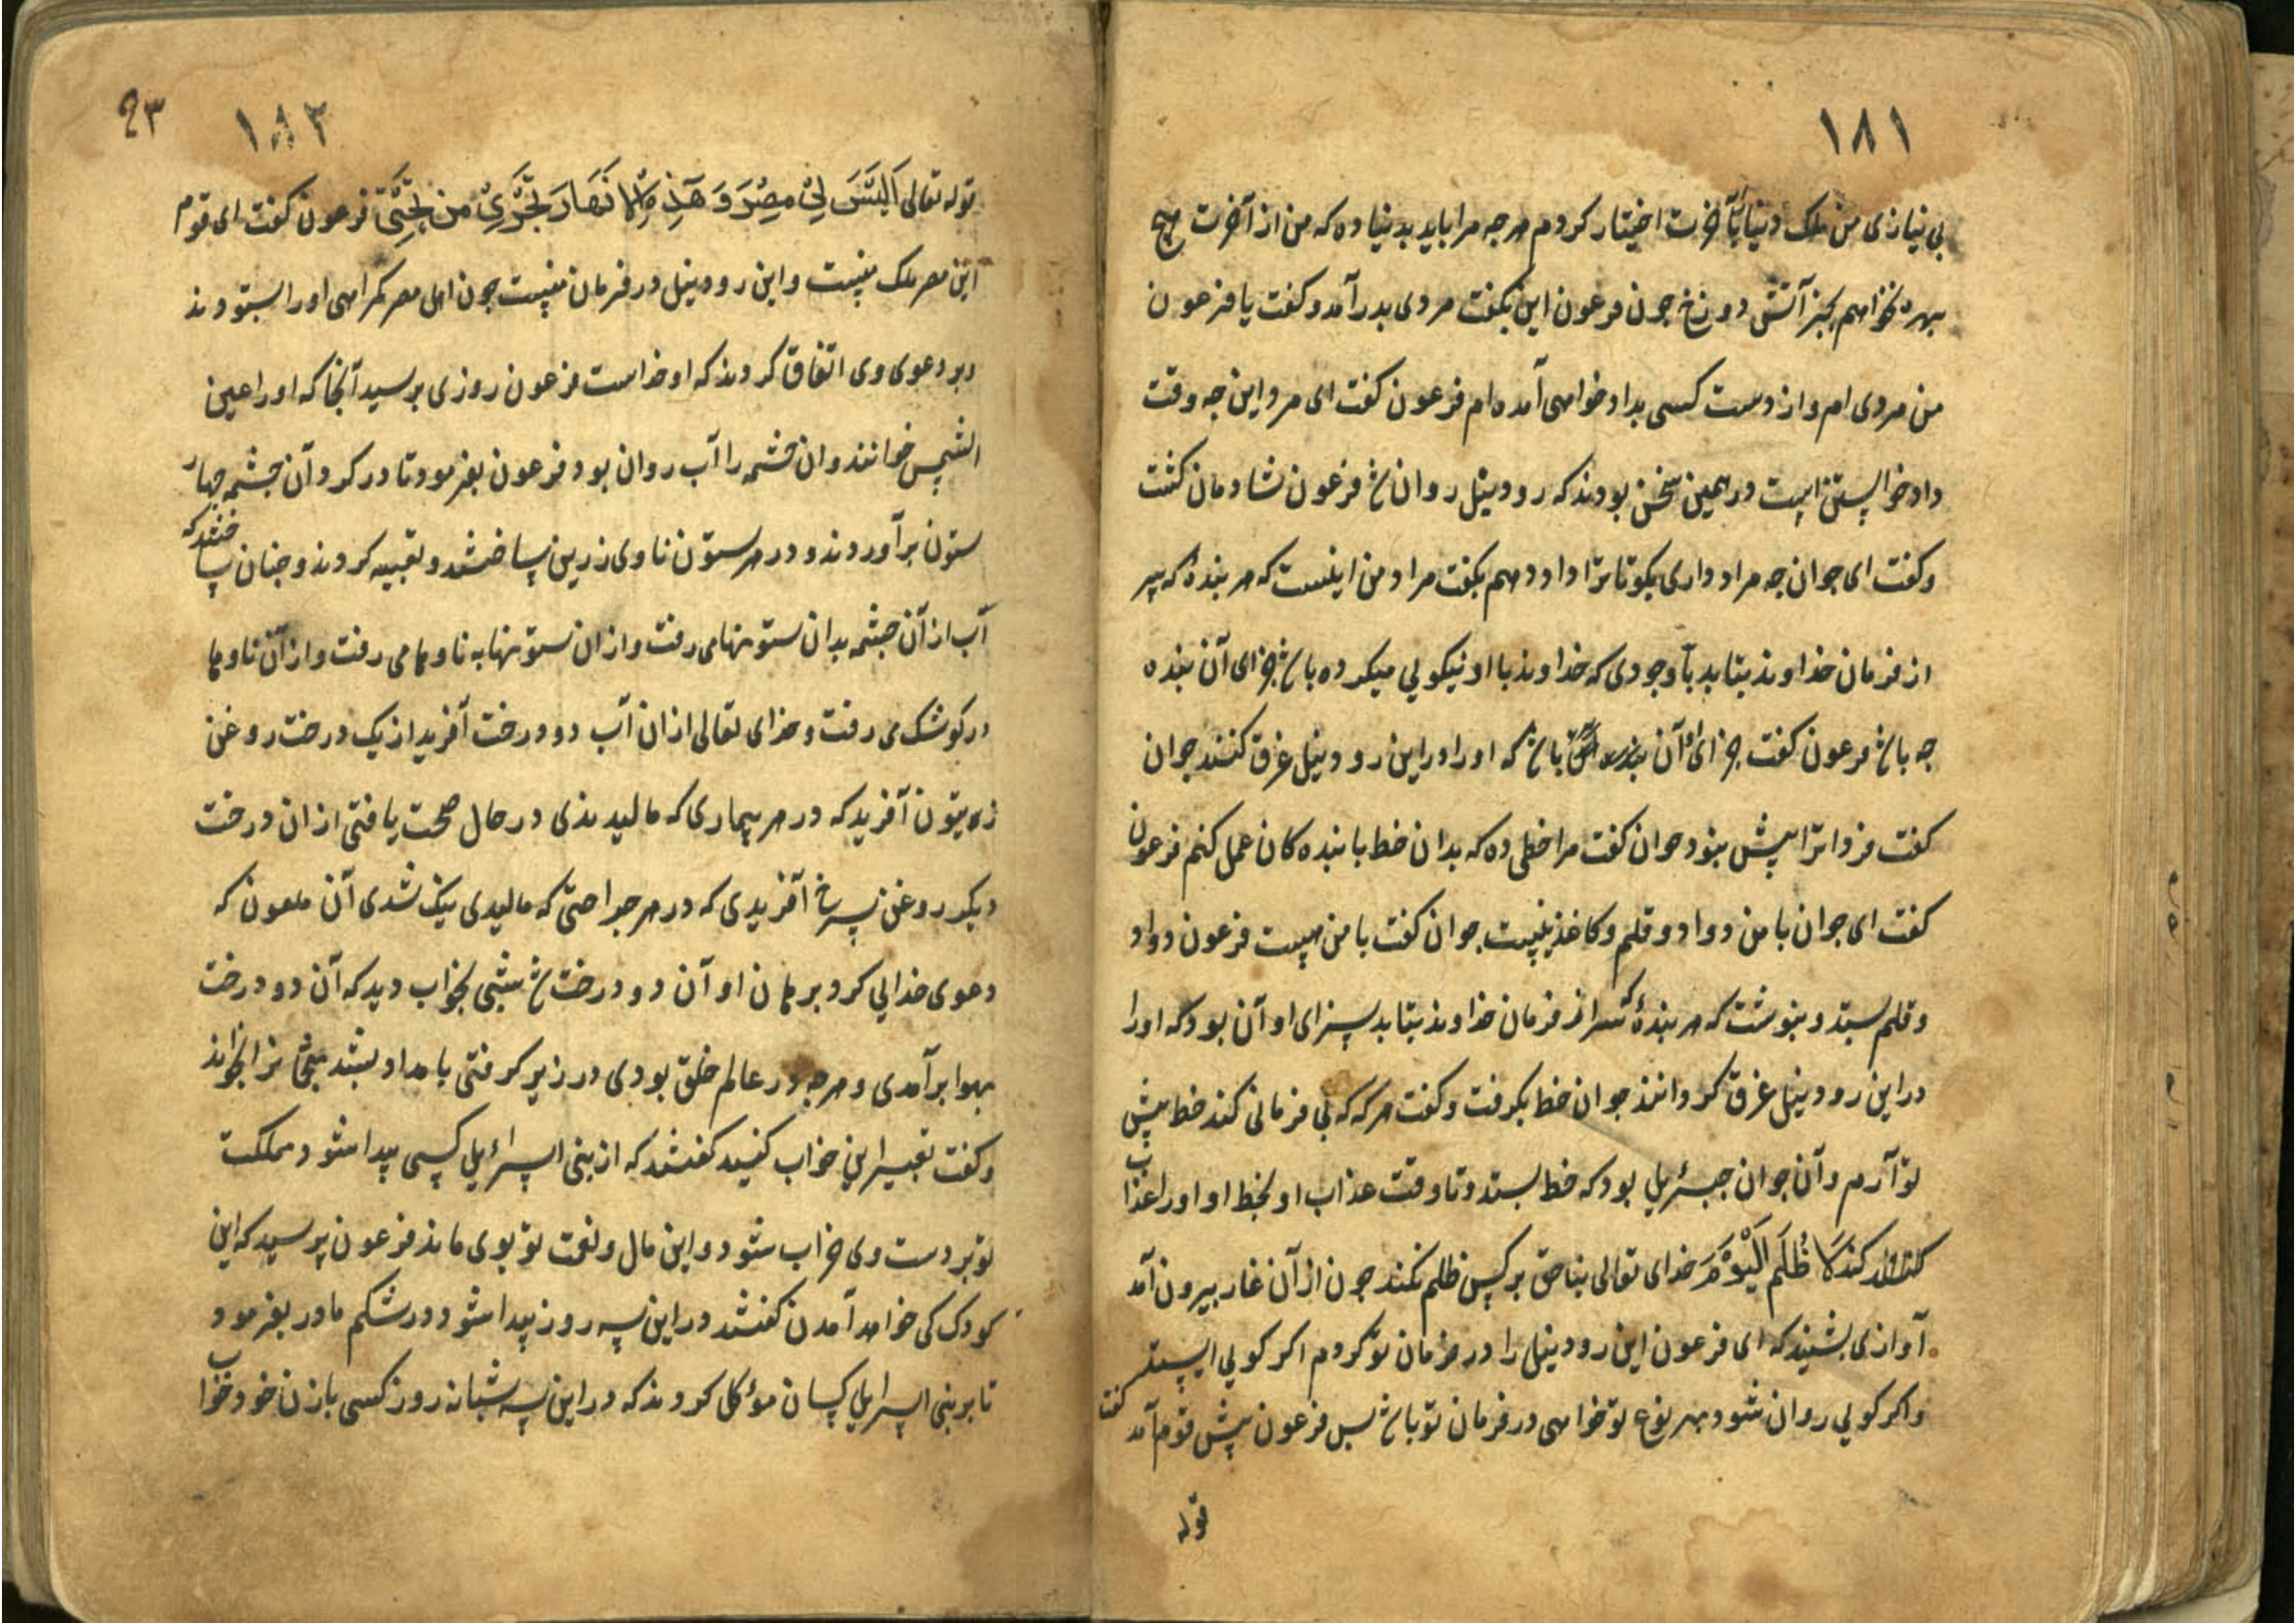 ۱۸۱
بی نیازی من ملک دنیا بآخرت اختیار کردم هرجه مرا باید بدنیا ده که من از آخرت هیچ
بهره نخواهم بجز آتش دوزخ جون فرعون این بکفت مردی بدرآمد و کفت یا فرعون
من مردی ام و از دست کسی بداد خواهی آمده ام فرعون کفت ای مرد این جه وقت
داد خواستن است در همین سخن بودند که رود نیل روان شد فرعون شادمان کشت
و کفت ای جوان جه مراد داری بکو تا ترا داد دهم بکفت مراد من اینست که هر بندهٔ که سر
از فرمان خداوند بتابد بآوجودی که خداوند با او نیکویی میکرده باشد جزای آن بنده
جه باشد فرعون کفت جزای آن بنده آن باشد که او را در این رود نیل غرق کنند جوان
کفت فردا ترا پیش بنود جوان کفت مرا خطی ده که بدان خط با بنده کان عمل کنم فرعون
کفت ای جوان با من دواد و قلم و کاغذ نیست جوان کفت با من هست فرعون دواد
و قلم بستد و بنوشت که هر بندهٔ که سر از فرمان خداوند بتابد سزای او آن بود که او را
در این رود نیل غرق کردانند جوان خط بکرفت و کفت هرکه که بی فرمانی کند خط پیش
تو آرم و آن جوان جبرئیل بود که خط بستد و تا وقت عذاب او بخط او او را عذاب
کند لَا ظُلَم الْيَوْمَ خدای تعالی بناحق بر کس ظلم نکند جون از آن غار بیرون آمد
آوازی بشنید که ای فرعون این رود نیل را در فرمان تو کردم اکر کویی ایستد
و اکر کویی روان شود بهر نوع تو خواهی در فرمان تو باشد پس فرعون پیش قوم آمد کفت
قوله
۱۸۳ ۹۳
قوله تعالی اَلَيْسَ لِيْ مِصْرَ وَ هَذِهِ الْاَنْهَارَ تَجْرِيْ مِن تَحْتِي فرعون کفت ای قوم
این مصر ملک منیست و این رود نیل در فرمان منیست جون اهل مصر کمراهی او را بستودند
و بر دعوی وی اتفاق کردند که او خداست فرعون روزی برسید آنجا که او را عین
الشمس خوانند و ان جشمه را آب روان بود فرعون بفرمود تا در کرد آن جشمه جهار
ستون برآوردند و در هر ستون ناوی زرین بساختند و تعبیه کردند و جنان ساختند که
آب از آن جشمه بدان ستونها می رفت و از ان ستونها به ناوها می رفت و از آن ناوها
در کوشک می رفت و خدای تعالی از ان آب دو درخت آفرید از یک درخت روغن
زه یتون آفرید که در هر بیماری که مالیدندی در حال صحت یافتی از ان درخت
دیکر روغن سرخ آفریدی که در هر جراحتی که مالیدی نیک شدی آن ملعون که
دعوی خدایی کرد برهان او آن دو درخت شد شبی بخواب دید که آن دو درخت
بهوا برآمدی و هرجه در عالم خلق بودی در زیر کرفتی بامداد بشد منجمان را بخواند
و کفت تعبیر این خواب کنید کفتند که از بنی اسرائیل کسی پیدا شود مملکت
تو بر دست وی خراب شود و این مال و نعمت تو بوی ماند فرعون پرسید که این
کودک کی خواهد آمدن کفتند در این سه روز پیدا شود در شکم مادر بفرمود
تا بر بنی اسرایل کسان مؤکل کردند که در این سه شبانه روز کسی با زن خود خواب